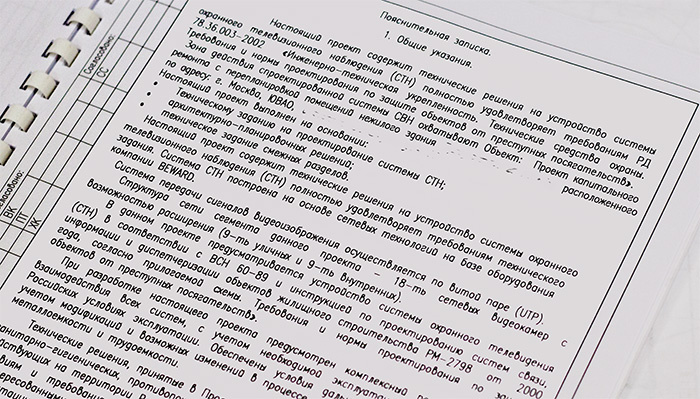 Пояснительная записка.
1. Общие указания.
Настоящий проект содержит технические решения на устройство системы
охранного телевизионного наблюдения (СТН) полностью удовлетворяет требованиям РД
78.36.003-2002 «Инженерно-техническая укрепленность. Технические средства охраны.
Требования и нормы проектирования по защите объектов от преступных посягательств».
Зона действия спроектированной системы СВН охватывают Объект: Проект капитального
ремонта с перепланировкой помещений нежилого здания расположенного
по адресу: г. Москва, ЮВАО,
Настоящий проект выполнен на основании:
• Техническому заданию на проектирование системы СТН;
• архитектурно-планировочных решений;
• техническое задание смежных разделов.
Настоящий проект содержит технические решения на устройство системы охранного
телевизионного наблюдения (СТН) полностью удовлетворяет требованиям технического
задания. Система СТН построена на основе сетевых технологий на базе оборудования
компании BEWARD.
Система передачи сигналов видеоизображения осуществляется по витой паре (UTP).
Структура сети сегмента данного проекта - 18-ть сетевых видеокамер с
возможностью расширения (9-ть уличных и 9-ть внутренних).
В данном проекте предусматривается устройство системы охранного телевидения
(СТН) в соответствии с ВСН 60-89 и инструкцией по проектированию систем связи,
информации и диспетчеризации объектов жилищного строительства РМ-2798 от 2000
года, согласно прилагаемой схемы. Требования и нормы проектирования по
объектов от преступных посягательств».
При разработке настоящего проекта предусмотрен комплексный
взаимодействия всех систем, с учетом необходимой
Российских условиях эксплуатации. Обеспечены условия
учетом модификаций и возможных изменений в процессе
металлоемкости и трудоемкости.
Технические решения, принятые в
на территории
и
Согласовано:
СС
Согласовано:
ВК
ПТ
ХК